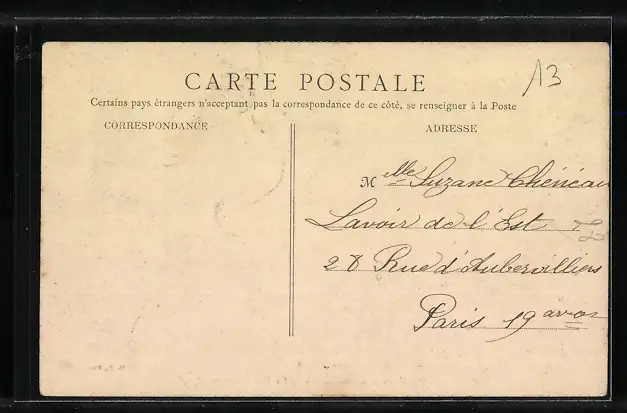 13
CARTE POSTALE
Certains pays étrangers n'acceptant pas la correspondance de ce côté, se renseigner à la Poste
CORRESPONDANCE
ADRESSE
Melle Suzane Chéneau
Lavoir de l'Est
28 Rue d'Aubervilliers
Paris 19